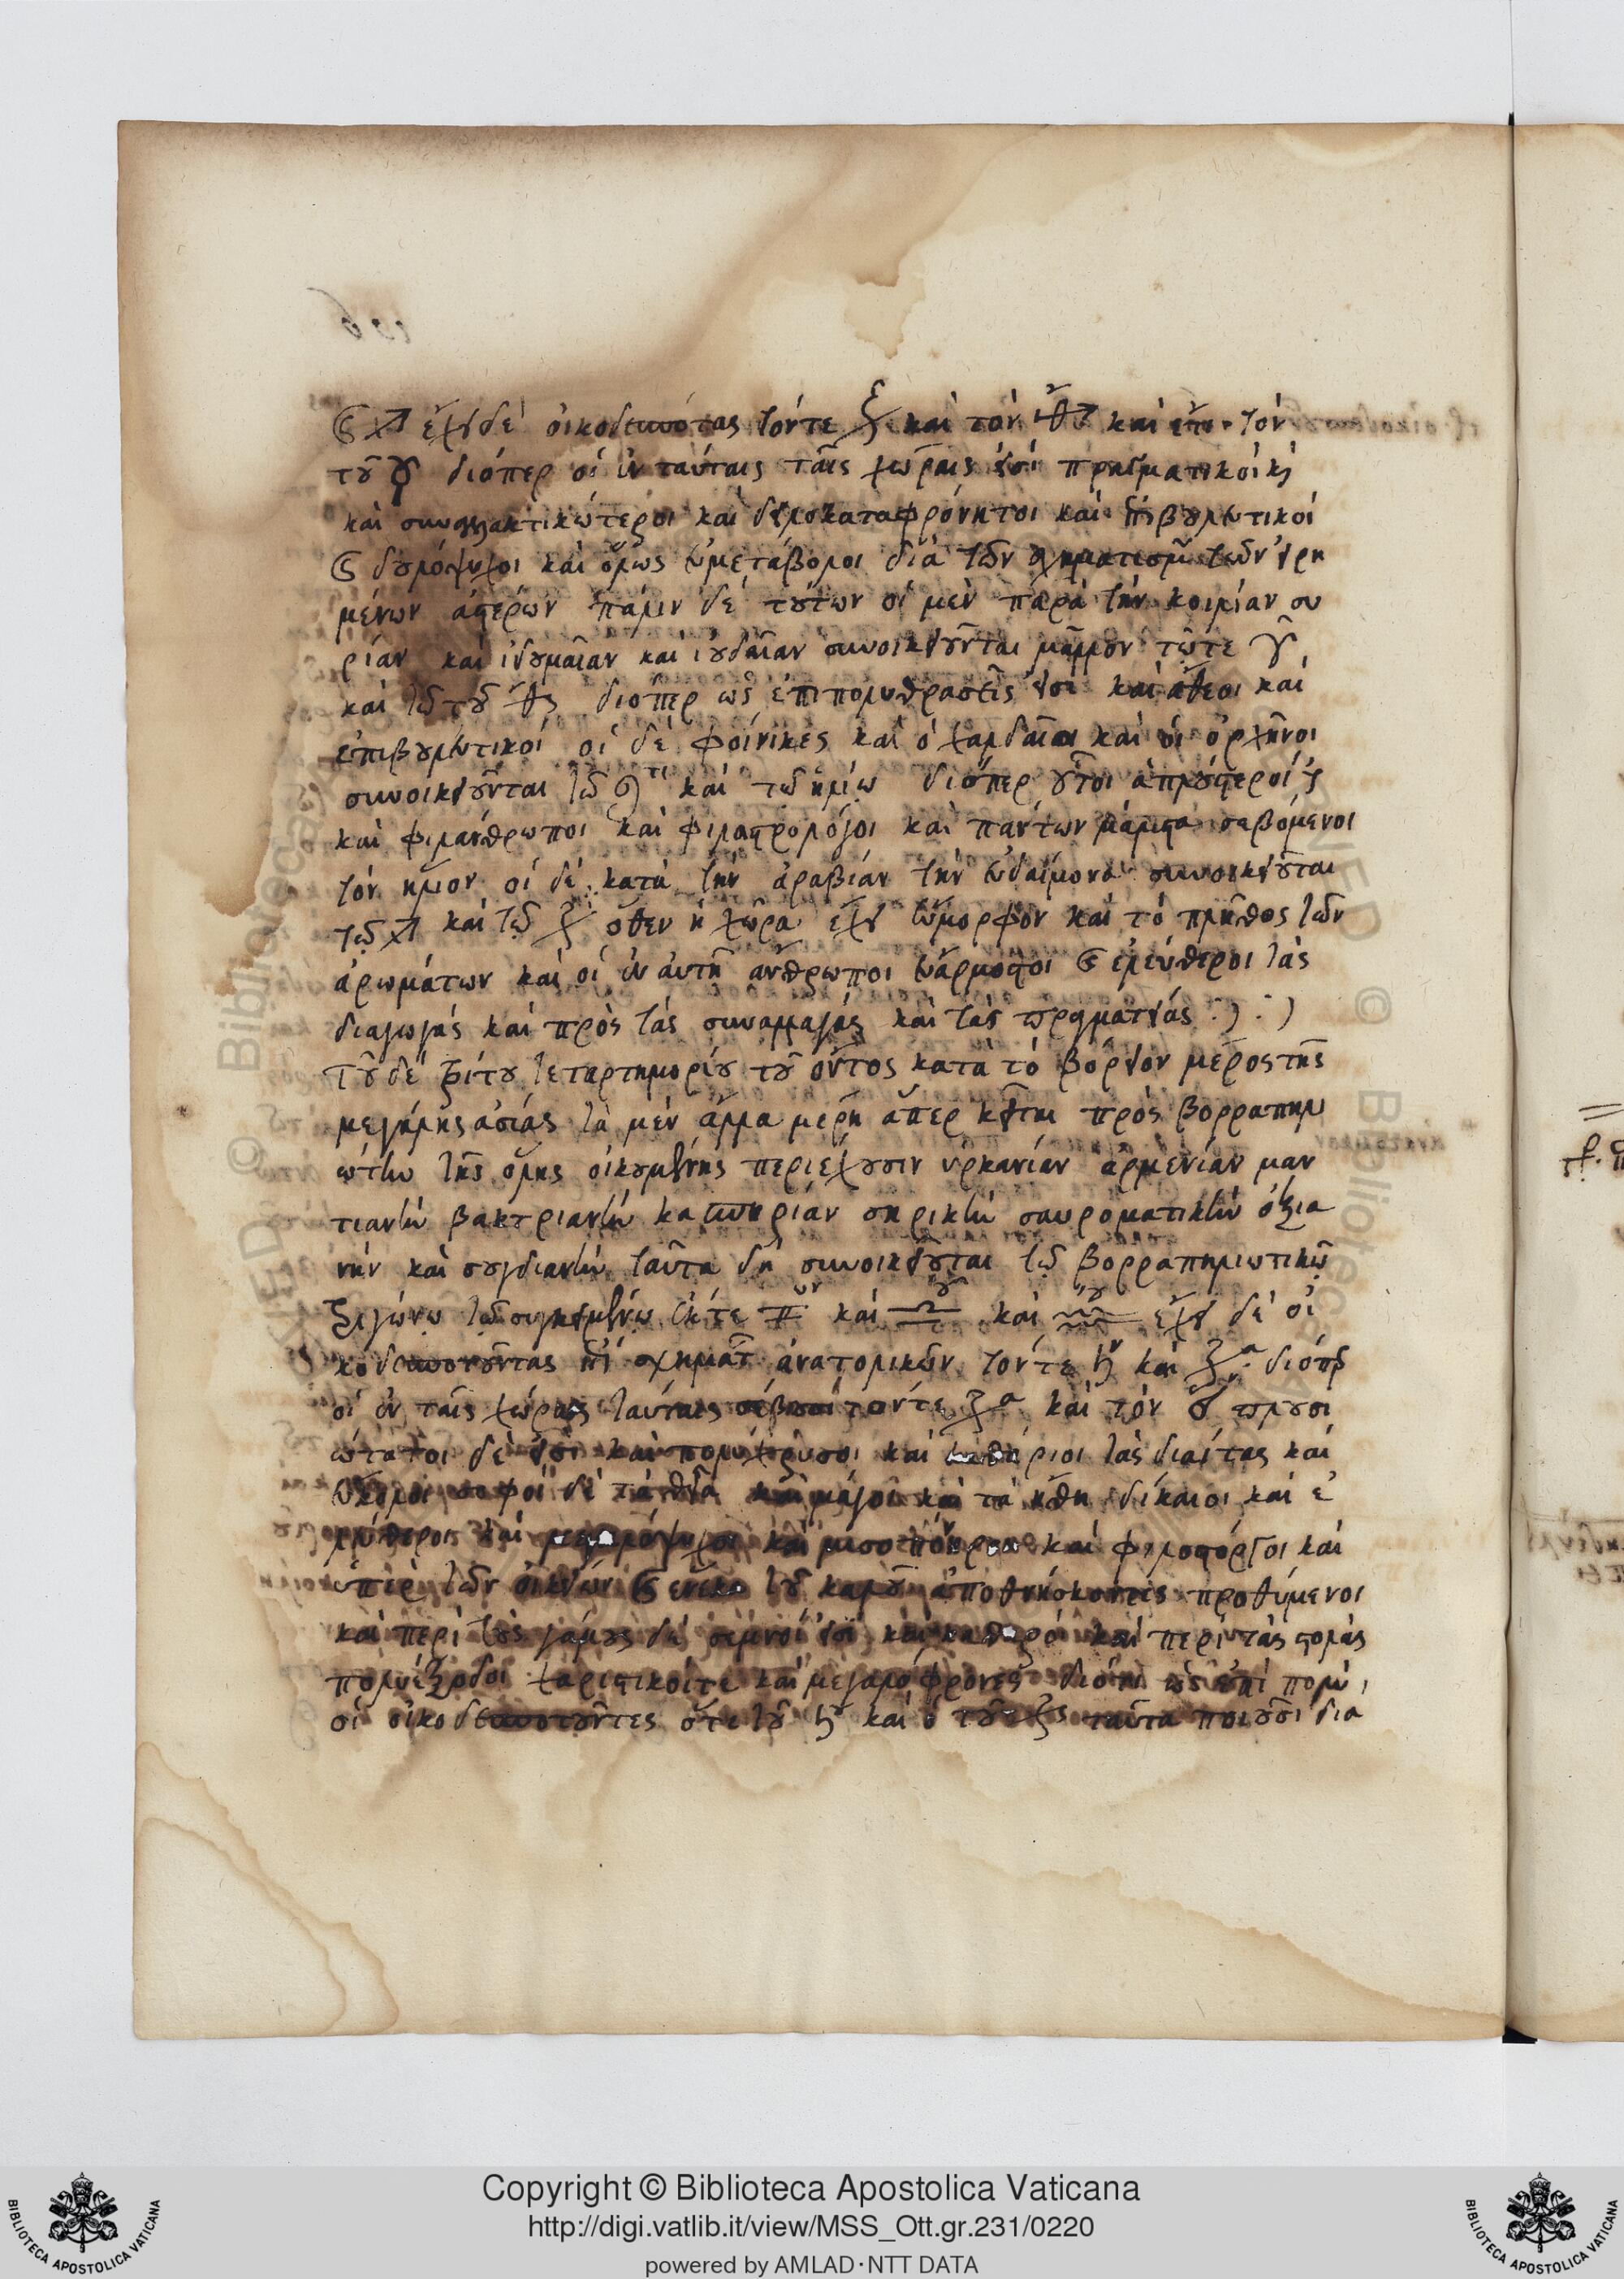 καὶ ♐ ἔχει δὲ οἰκοδεσπότας τόντε ♃ καὶ τὸν ♂ καὶ ἔτι τὸν
τοῦ ☿ διόπερ οἱ ἐν ταύταις ταῖς χώραις εἰσὶ πραγματικοὶ
καὶ συναλλακτικώτεροι καὶ δειλοκαταφρόνητοι καὶ ἐπιβουλευτικοί
καὶ δουλόψυχοι καὶ ὅλως εὐμετάβολοι διὰ τῶν σχηματισμῶν τῶν εἰρη
μένων ἀστέρων πάλιν δὲ τούτων οἱ μὲν παρὰ τὴν κοιλίαν συ
ρίαν καὶ ἰδουμαῖαν καὶ ἰουδαῖαν συνοικειοῦνται μᾶλλον τῶτε ♈
καὶ τῶ τοῦ ♂ διόπερ ὡς ἐπιπολυ θρασεῖς εἰσι καὶ ἄθεοι καὶ
ἐπιβουλευτικοί οἱ δὲ φοίνικες καὶ ὁ χαλδαῖοι καὶ οἱ ὀρχηνοι
συνοικειοῦνται τῶ ♌ καὶ τῶ ἡλίω διόπερ οὗτοι ἁπλούστεροί
καὶ φιλάνθρωποι καὶ φιλαστρολόγοι καὶ πάντων μάλιστα σεβόμενοι
τὸν ἥλιον οἱ δὲ κατὰ τὴν ἀραβίαν τὴν εὐδαίμονα συνοικειοῦται
τῶ ♐ καὶ τῶ ♃ ὅθεν ἡ χώρα ἔχει εὔμορφον καὶ τὸ πλῆθος τῶν
ἀρωμάτων καὶ οἱ ἐν αὐτῇ ἄνθρωποι εὐάρμοστοι καὶ ἐλεύθεροι τὰς
διαγωγὰς καὶ πρὸς τὰς συναλλαγὰς καὶ τὰς πραγματείας
Τοῦ δὲ τρίτου τεταρτημορίου τοῦ ὄντος κατὰ τὸ βόρειον μέρος τῆς
μεγάλης ἀσίας τὰ μὲν ἄλλα μέρη ἅπερ κεῖται πρὸς βορραπηλι
ώτην τῆς ὅλης οἰκουμένης περιέχουσιν ὑρκανίαν ἀρμενίαν μαν
τιανὴν βακτριανὴν κασπηρίαν σηρικὴν σαυροματικὴν ὀξια
νὴν καὶ σουγδιανὴν ταῦτα δὴ συνοικειοῦται τῶ βορραπηλιωτικῶ
τριγώνω τῶ συγκειμένω ἔκτε ♊ καὶ ♎ καὶ ♒ ἔχει δὲ οἰ
κοδεσποτοῦντας ἐπὶ σχημάτων ἀνατολικῶν τόντε ♄ καὶ ♃ διόπερ
οἱ ἐν ταῖς χώραις ταύταις σέβουσι τόντε ♃ καὶ τὸν πλουσι
ώτατοι δὲ εἰσὶ καὶ πολύχρυσοι καὶ καθάριοι τὰς διαίτας καὶ
εὔκολοι σοφοὶ δὲ τὰ θεῖα καὶ μάγοι καὶ τὰ ἤθη δίκαιοι καὶ ἐ
λεύθεροι καὶ μεγαλόψυχοι καὶ μισοπόνηροι καὶ φιλόστοργοι καὶ
ὑπὲρ τῶν οἰκείων καὶ ἕνεκα τοῦ καλοῦ ἀποθνήσκοντες προθύμενοι
καὶ περὶ τοὺς γάμους δὲ σεμνοί εἰσι καὶ καθαροὶ καὶ περὶ τὰς στολὰς
πολυέξοδοι χαριστικοίτε καὶ μεγαλόφρονες διότι ὡς ἐπὶ πολὺ
οἱ οἰκοδεσποτοῦντες ὅτε τοῦ ♄ καὶ ὁ τοῦ ♃ ταῦτα ποιοῦσι δια
Copyright © Biblioteca Apostolica Vaticana
http://digi.vatlib.it/view/MSS_Ott.gr.231/0220
powered by AMLAD·NTT DATA
BIBLIOTECA APOSTOLICA VATICANA
BIBLIOTECA APOSTOLICA VATICANA